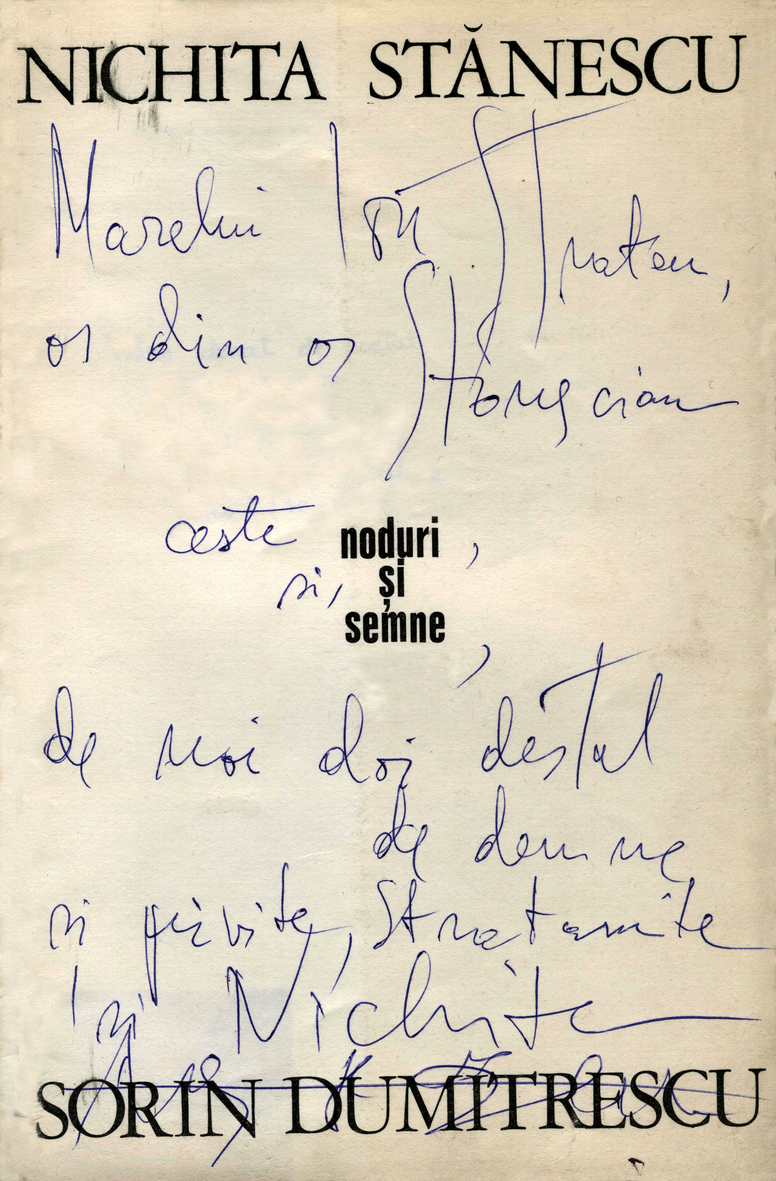 NICHITA STĂNESCU
Marelui Ion Stratan,
os din os Stănescian
aceste noduri ,
si, și
semne ,
de noi doi destul
de demne
si privite, Stratamite
Nichita
SORIN DUMITRESCU